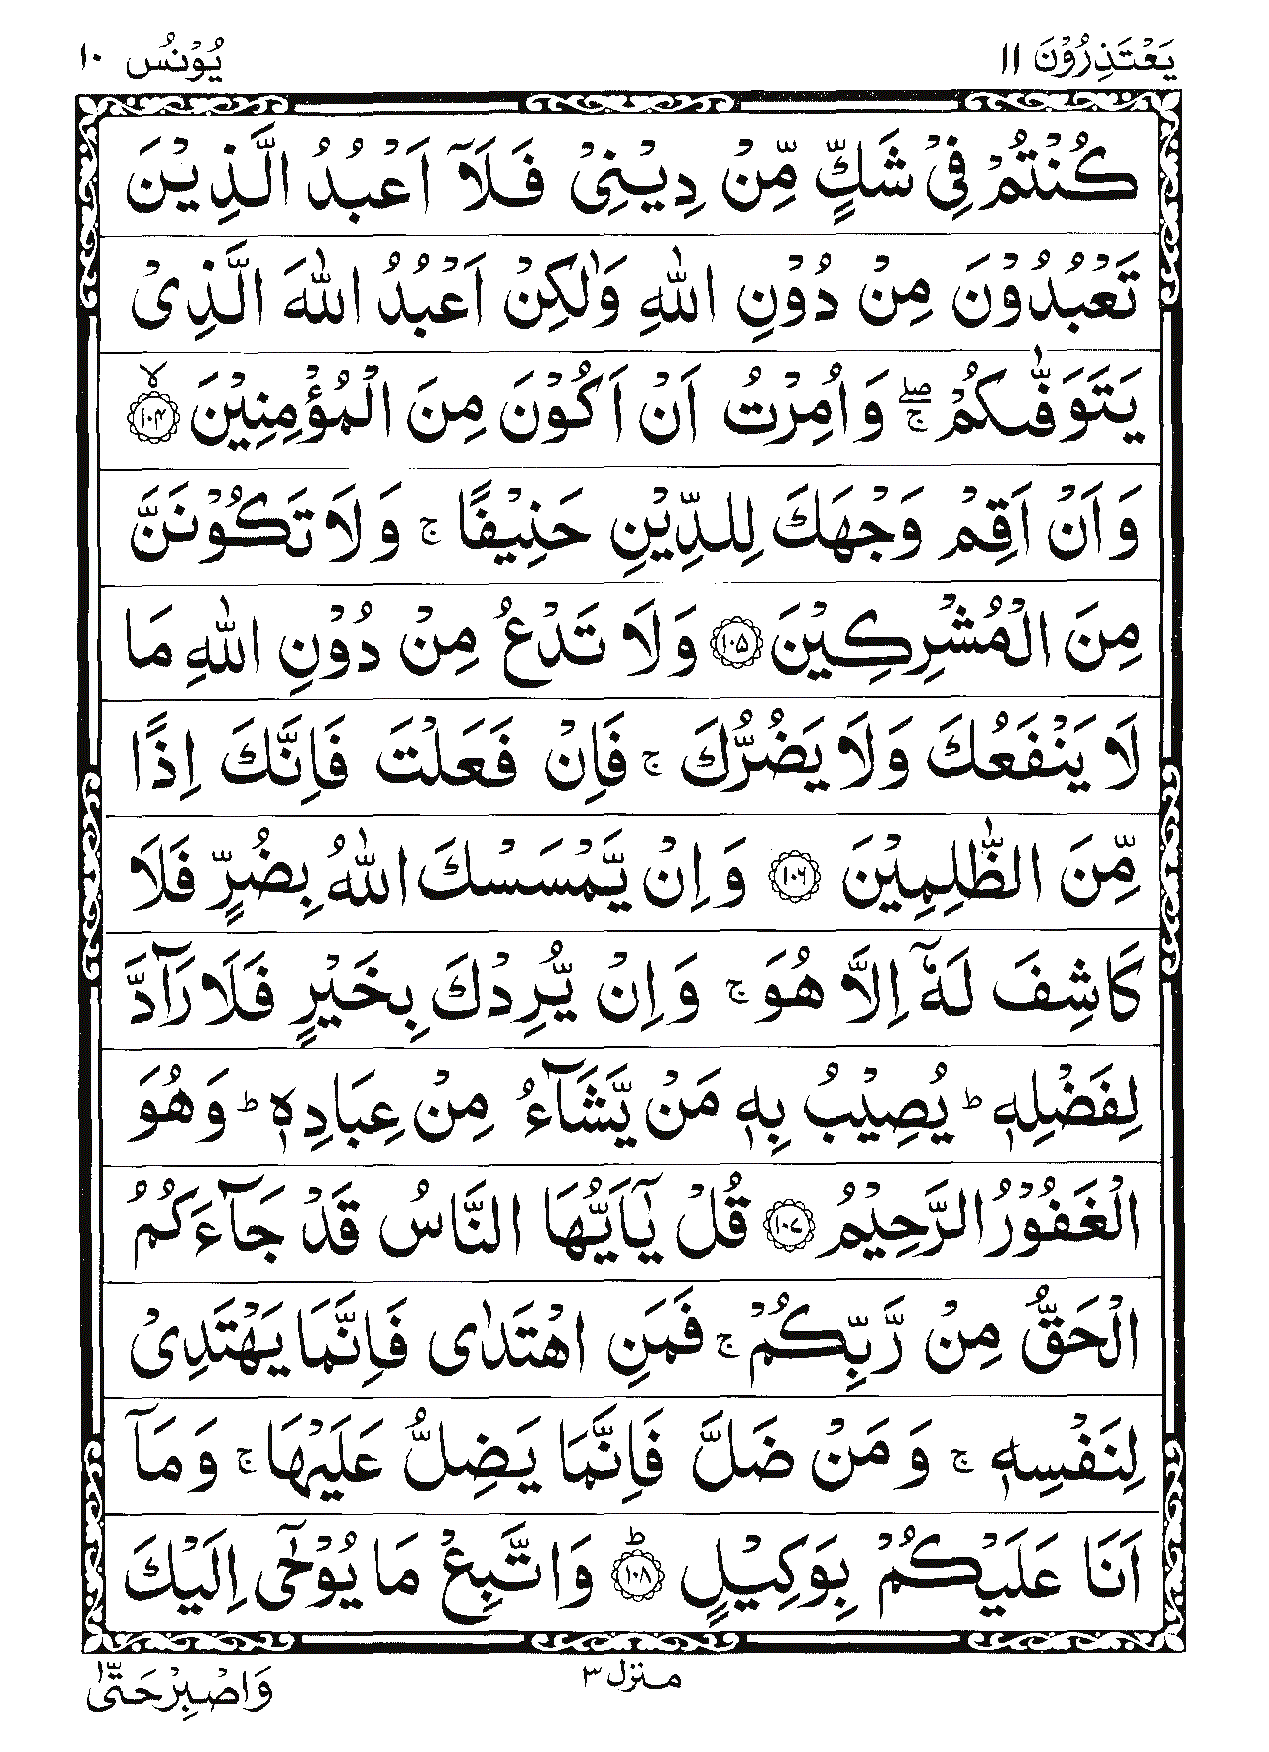 يَعْتَذِرُوْنَ ١١
يُوْنُس ١٠
كُنْتُمْ فِيْ شَكٍّ مِّنْ دِيْنِيْ فَلَآ اَعْبُدُ الَّذِيْنَ
تَعْبُدُوْنَ مِنْ دُوْنِ اللّٰهِ وَلٰكِنْ اَعْبُدُ اللّٰهَ الَّذِيْ
يَتَوَفّٰىكُمْ ۖۚ وَاُمِرْتُ اَنْ اَكُوْنَ مِنَ الْمُؤْمِنِيْنَ ۙ﴿۱۰۴﴾
وَاَنْ اَقِمْ وَجْهَكَ لِلدِّيْنِ حَنِيْفًا ۚ وَلَا تَكُوْنَنَّ
مِنَ الْمُشْرِكِيْنَ ﴿۱۰۵﴾ وَلَا تَدْعُ مِنْ دُوْنِ اللّٰهِ مَا
لَا يَنْفَعُكَ وَلَا يَضُرُّكَ ۚ فَاِنْ فَعَلْتَ فَاِنَّكَ اِذًا
مِّنَ الظّٰلِمِيْنَ ﴿۱۰۶﴾ وَاِنْ يَّمْسَسْكَ اللّٰهُ بِضُرٍّ فَلَا
كَاشِفَ لَهٗٓ اِلَّا هُوَ ۚ وَاِنْ يُّرِدْكَ بِخَيْرٍ فَلَا رَآدَّ
لِفَضْلِهٖ ؕ يُصِيْبُ بِهٖ مَنْ يَّشَآءُ مِنْ عِبَادِهٖ ؕ وَهُوَ
الْغَفُوْرُ الرَّحِيْمُ ﴿۱۰۷﴾ قُلْ يٰٓاَيُّهَا النَّاسُ قَدْ جَآءَكُمُ
الْحَقُّ مِنْ رَّبِّكُمْ ۚ فَمَنِ اهْتَدٰى فَاِنَّمَا يَهْتَدِيْ
لِنَفْسِهٖ ۚ وَمَنْ ضَلَّ فَاِنَّمَا يَضِلُّ عَلَيْهَا ۚ وَمَآ
اَنَا عَلَيْكُمْ بِوَكِيْلٍ ؕ﴿۱۰۸﴾ وَاتَّبِعْ مَا يُوْحٰٓى اِلَيْكَ
منزل ۳
وَاصْبِرْ حَتّٰى